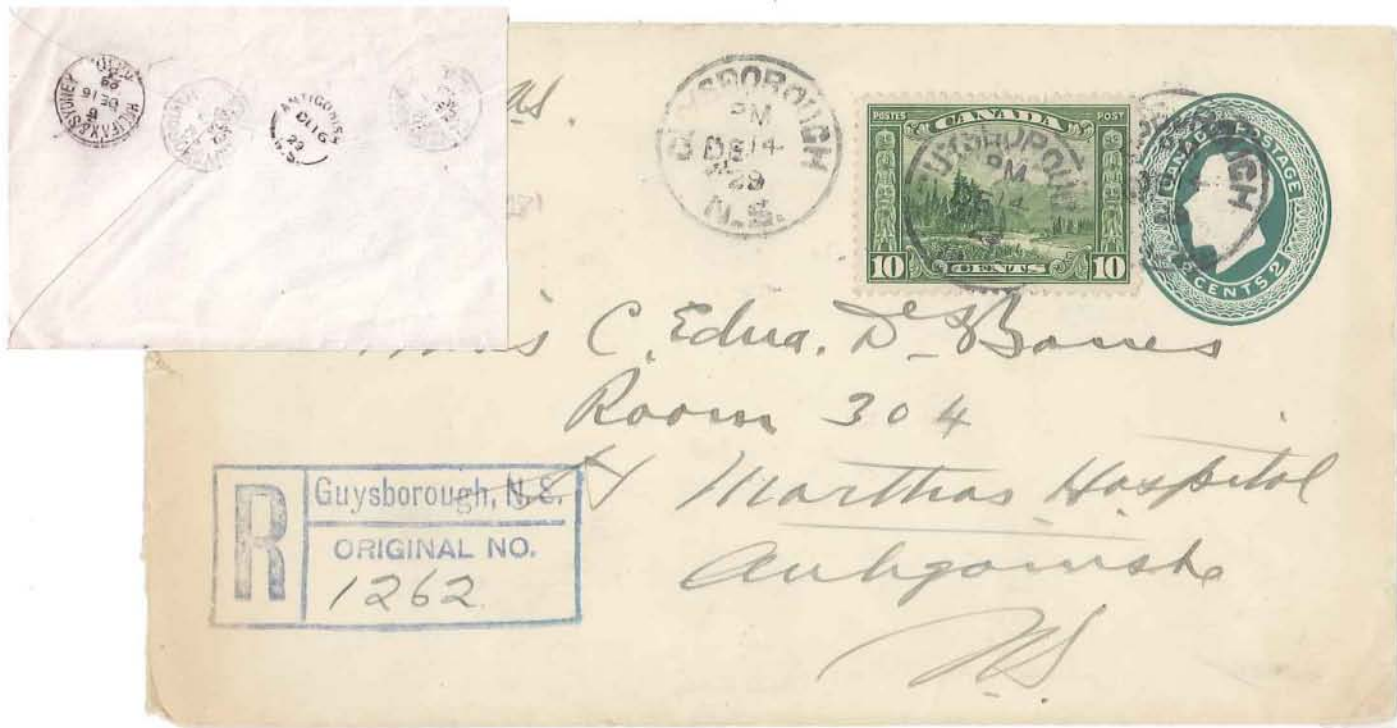 HALIFAX & SYDNEY
DE 16
29
ANTIGONISH
DE 16
29
N.S.
N.S.
GUYSBOROUGH
PM
DE 14
29
N.S.
POSTES POST
CANADA
10 CENTS 10
PM
CANADA POSTAGE
2 CENTS 2
C. Edna. De Barres
Room 304
St Marthas Hospital
Antigonishe
N.S.
R
Guysborough, N.S.
ORIGINAL NO.
1262